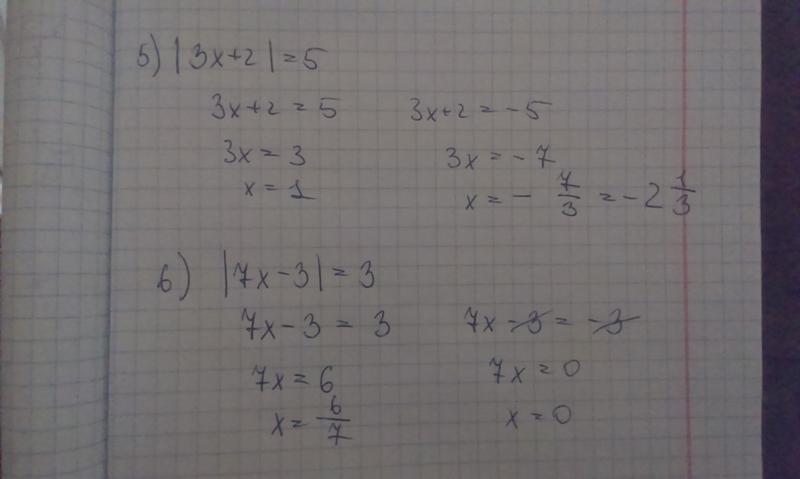 5) |3x+2|=5
3x+2=5 3x+2=-5
3x=3 3x=-7
x=1 x=-7/3=-2 1/3
6) |7x-3|=3
7x-3=3 7x-3=-3
7x=6 7x=0
x=6/7 x=0